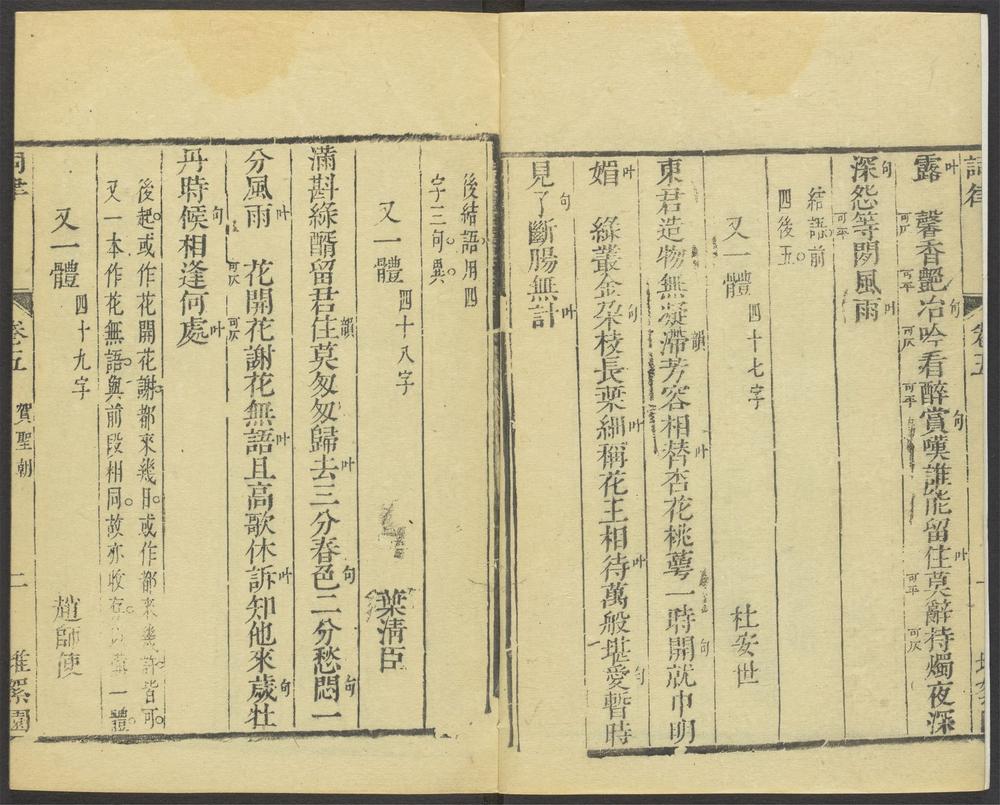 詞律 卷五
露叶 馨香艷冶句吟看醉賞句嘆誰能留住叶莫辭持燭夜深
深怨句等閒風雨叶
結語前
四後五
又一體 四十七字 杜安世
東君造物無凝滯韻芳容相替叶杏花桃萼一時開句就中明
媚叶 綠叢金朶枝長葉細叶稱花王相待叶萬般堪愛句暫時
見句了斷腸無計叶
後結語用四
字三句異
又一體 四十八字 葉淸臣
滿斟綠醑留君住韻莫匆匆歸去叶三分春色句二分愁悶句一
分風雨叶 花開花謝花無語叶且高歌休訴叶知他來歲句牡
丹時候句相逢何處叶
後起或作花開花謝都來幾日或作都來幾許皆可
又一本作花無語與前段相同故亦收 一體
又一體 四十九字 趙師使
詞律 卷五 賀聖朝 二 堆絮園